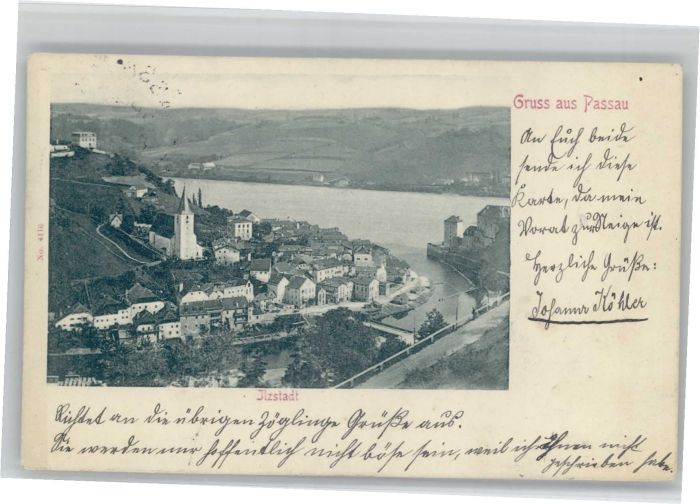 Gruss aus Passau
An Euch beide
sende ich diese
Karte, da mein
Vorat zur Neige ist.
Herzliche Grüße:
Johanna Köhler
No. 4116
Ilzstadt
Richtet an die übrigen Zöglinge Grüße aus.
Sie werden mir hoffentlich nicht böse sein, weil ich Ihnen nicht
geschrieben habe.